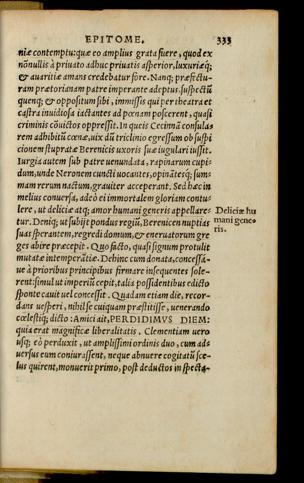 EPITOME. 333
niæ contemptu: quæ eo amplius grata fuere, quod ex
nõnullis à priuato adhuc priuatis asperior, luxuriæq;
& auaritiæ amans credebatur fore. Nanq; præfectu-
ram prætorianam patre imperante adeptus, suspectũ
quenq; & oppositum sibi, immissis qui per theatra et
castra inuidiosa iactantes ad pœnam poscerent, quasi
criminis cõuictos oppressit. In queis Cecinnã consula-
rem adhibitũ cœnæ, uix dũ triclinio egressum ob suspi
cionem stupratæ Berenicis uxoris suæ iugulari iussit.
Iurgia autem sub patre uenundata, rapinarum cupi-
dum, unde Neronem cuncti uocantes, opinãtesq; sum-
mam rerum nactum, grauiter acceperant. Sed hæc in
melius conuersa, adeò ei immortalem gloriam contu-
lere, ut deliciæ atq; amor humani generis appellare-
tur. Deniq; ut subijt pondus regiũ, Berenicen nuptias
suas sperantem, regredi domum, & eneruatorum gre
ges abire præcepit. Quo facto, quasi signum protulit
mutatæ intemperãtiæ. Dehinc cum donata, concessá-
ue à prioribus principibus firmare insequentes sole-
rent: simul ut imperiũ cepit, talia possidentibus edicto
sponte cauit uel concessit. Quadam etiam die, recor-
dans uesperi, nihil se cuiquam præstitisse, uenerando
cœlestiq; dicto: Amici ait, PERDIDIMVS DIEM:
quia erat magnificæ liberalitatis. Clementiam uero
usq; eò perduxit, ut amplissimi ordinis duo, cum ad-
uersus eum coniurassent, neque abnuere cogitatũ sce-
lus quirent, monuerit primo, post deductos in specta-
Deliciæ hu
mani gene-
ris.